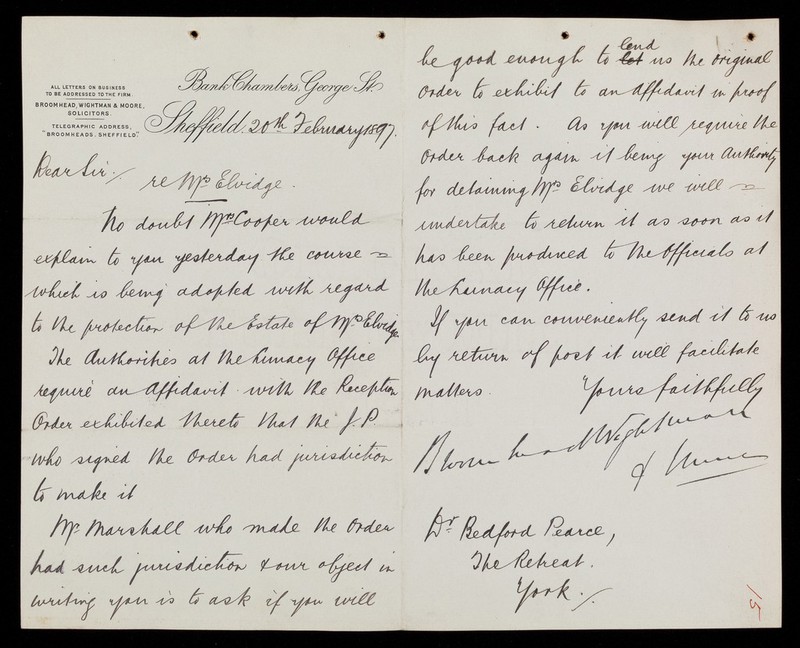 ALL LETTERS ON BUSINESS
TO BE ADDRESSED TO THE FIRM.
BROOMHEAD, WIGHTMAN & MOORE,
SOLICITORS.
TELEGRAPHIC ADDRESS,
"BROOMHEADS, SHEFFIELD."
Bank Chambers, George St.
Sheffield, 20th February 1897.
Dear Sir:/
re Mrs Elvidge.
No doubt Mrs Cooper would
explain to you yesterday the course
which is being adopted with regard
to the protection of the Estate of Mrs Elvidge
The Authorities at the Lunacy Office
require an Affidavit with the Reception
Order exhibited thereto that the J.P.
who signed the Order had jurisdiction
to make it
Mr Marshall who made the Order
had such jurisdiction & our object in
writing you is to ask if you will
be good enough to let lend us the original
order to exhibit to an Affidavit in proof
of this fact. As you will require the
Order back again it being your Authority
for detaining Mrs Elvidge we will
undertake to return it as soon as it
has been produced to the Officials at
the Lunacy Office.
If you can conveniently send it to us
by return of post it will facilitate
matters. Yours faithfully
Broomhead Wightman
& Moore
Dr Bedford Pearce,
The Retreat.
York./.
15